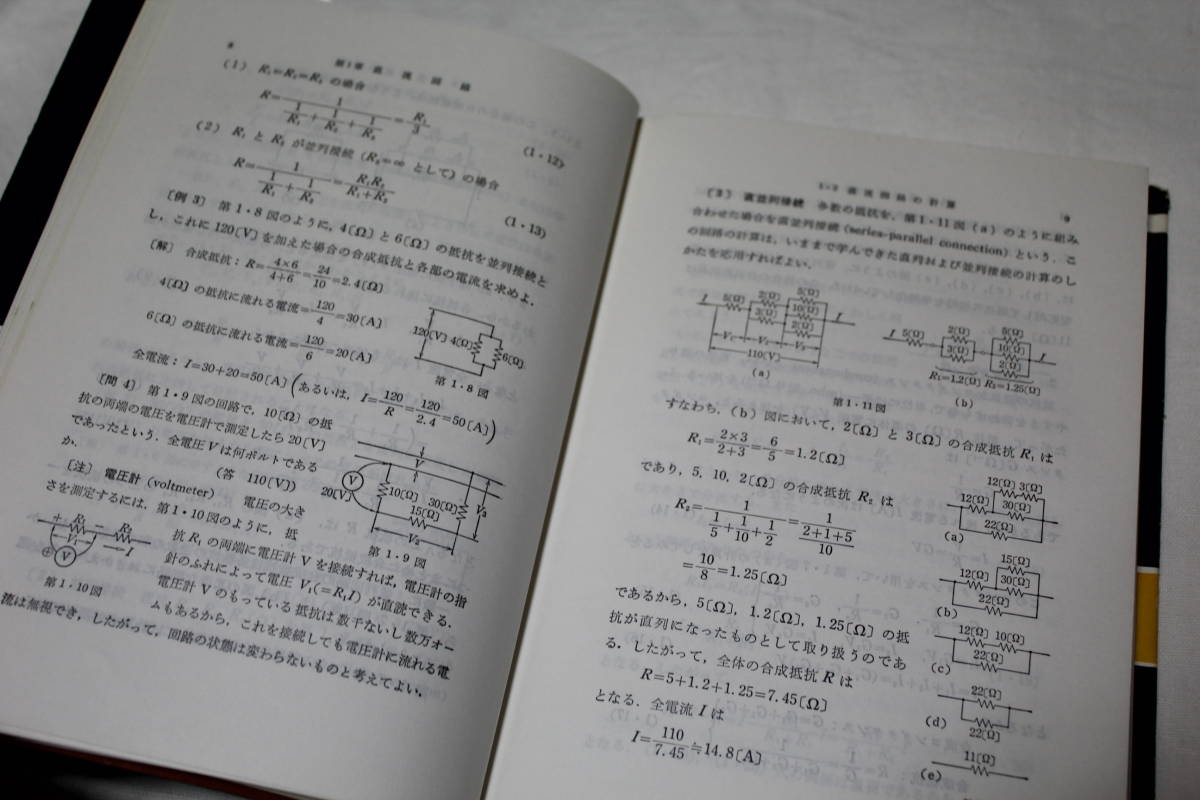 8
第1章 直流回路
(1) R₁=R₂=R₃ の場合
R=1/(1/R₁+1/R₂+1/R₃)=R₁/3
(1・12)
(2) R₁ と R₂ が並列接続 (R₃=∞ として) の場合
R=1/(1/R₁+1/R₂)=R₁R₂/(R₁+R₂)
(1・13)
〔例 3〕 第1・8図のように，4〔Ω〕と6〔Ω〕の抵抗を並列接続と
し，これに120〔V〕を加えた場合の合成抵抗と各部の電流を求めよ．
〔解〕 合成抵抗：R=4×6/(4+6)=24/10=2.4〔Ω〕
4〔Ω〕の抵抗に流れる電流=120/4=30〔A〕
6〔Ω〕の抵抗に流れる電流=120/6=20〔A〕
全電流：I=30+20=50〔A〕(あるいは，I=120/R=120/2.4=50〔A〕)
120〔V〕 4〔Ω〕 6〔Ω〕
第1・8図
〔問 4〕 第1・9図の回路で，10〔Ω〕の抵
抗の両端の電圧を電圧計で測定したら20〔V〕
であったという．全電圧Vは何ボルトである
か．
(答 110〔V〕)
V
V
20〔V〕
10〔Ω〕 30〔Ω〕
15〔Ω〕
V₃
V₂
第1・9図
〔注〕 電圧計 (voltmeter) 電圧の大き
さを測定するには，第1・10図のように，抵
抗R₁の両端に電圧計Vを接続すれば，電圧計の指
針のふれによって電圧V₁(=R₁I)が直読できる．
電圧計Vのもっている抵抗は数千ないし数万オー
ムもあるから，これを接続しても電圧計に流れる電
流は無視でき，したがって，回路の状態は変わらないものと考えてよい．
+ R₁ − R₂
V₁ I
+ V
第1・10図
1・2 直流回路の計算
9
〔3〕 直並列接続 多数の抵抗を，第1・11図 (a) のように組み
合わせた場合を直並列接続 (series-parallel connection) という．こ
の回路の計算は，いままで学んできた直列および並列接続の計算のし
かたを応用すればよい．
I 5〔Ω〕 2〔Ω〕 3〔Ω〕 5〔Ω〕 10〔Ω〕 2〔Ω〕 I
110〔V〕
(a)
I 5〔Ω〕 2〔Ω〕 3〔Ω〕 5〔Ω〕 10〔Ω〕 2〔Ω〕 I
R₁=1.2〔Ω〕 R₂=1.25〔Ω〕
(b)
第1・11図
すなわち，(b)図において，2〔Ω〕と3〔Ω〕の合成抵抗R₁は
R₁=2×3/(2+3)=6/5=1.2〔Ω〕
であり，5，10，2〔Ω〕の合成抵抗R₂は
R₂=1/(1/5+1/10+1/2)=1/((2+1+5)/10)
=10/8=1.25〔Ω〕
であるから，5〔Ω〕，1.2〔Ω〕，1.25〔Ω〕の抵
抗が直列になったものとして取り扱うのであ
る．したがって，全体の合成抵抗Rは
R=5+1.2+1.25=7.45〔Ω〕
となる．全電流Iは
I=110/7.45≒14.8〔A〕
12〔Ω〕 3〔Ω〕
12〔Ω〕 30〔Ω〕
22〔Ω〕
(a)
15〔Ω〕
12〔Ω〕 30〔Ω〕
22〔Ω〕
(b)
12〔Ω〕 10〔Ω〕
22〔Ω〕
(c)
22〔Ω〕
22〔Ω〕
(d)
11〔Ω〕
(e)